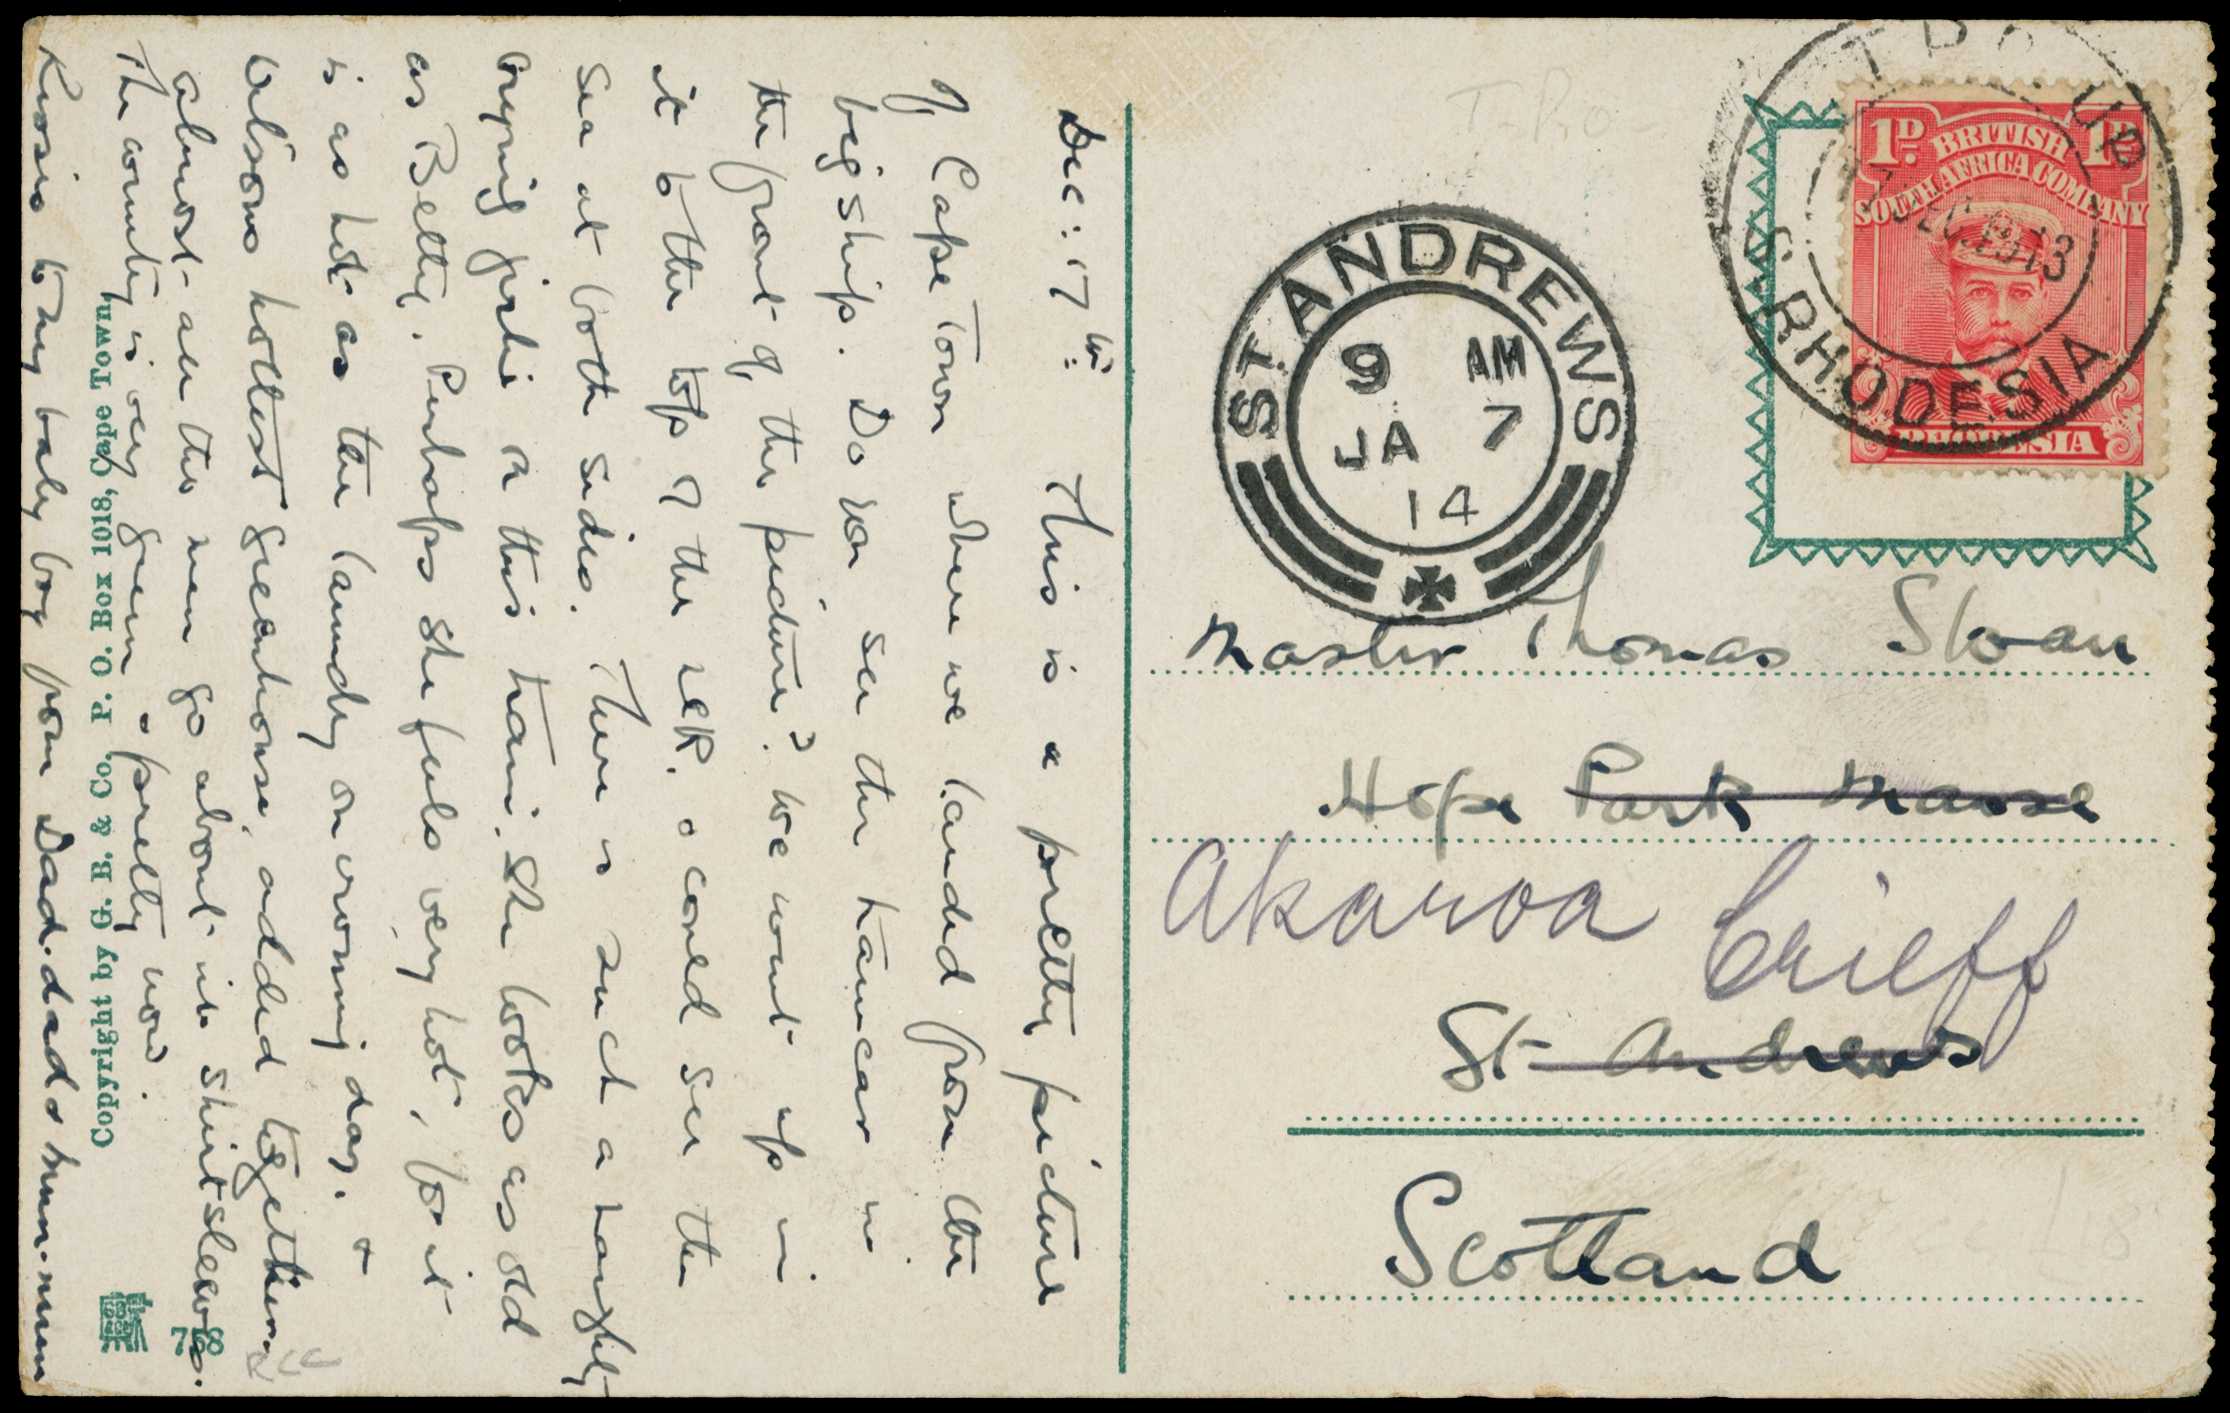 Dec: 17th: This is a pretty picture
of Cape Town where we landed from the
big ship. Do you see the tramcar in
the front of the picture? We went up in
it to the top & the rest. I could see the
sea at both sides. There is such a naughty
crying girlie in this train. She looks as old
as Betty. Perhaps she feels very hot, for it
is as hot as the laundry on ironing day, &
hottest greenhouse, added together.
Almost all the men go about in shirtsleeves.
The country is very green & pretty now.
Kisses to my baby boy from Dad.dad & mum.mum
Copyright by G. B. & Co. P. O. Box 1018, Cape Town.
758
T.P.O. UP
S. RHODESIA
DEC 1913
1D. 1D.
BRITISH
SOUTH AFRICA COMPANY
RHODESIA
T.P.O.
ST. ANDREWS
9 AM
JA 7
14
Master Thomas Sloan
Hope Park Manse
Akaroa Crieff
St Andrews
Scotland